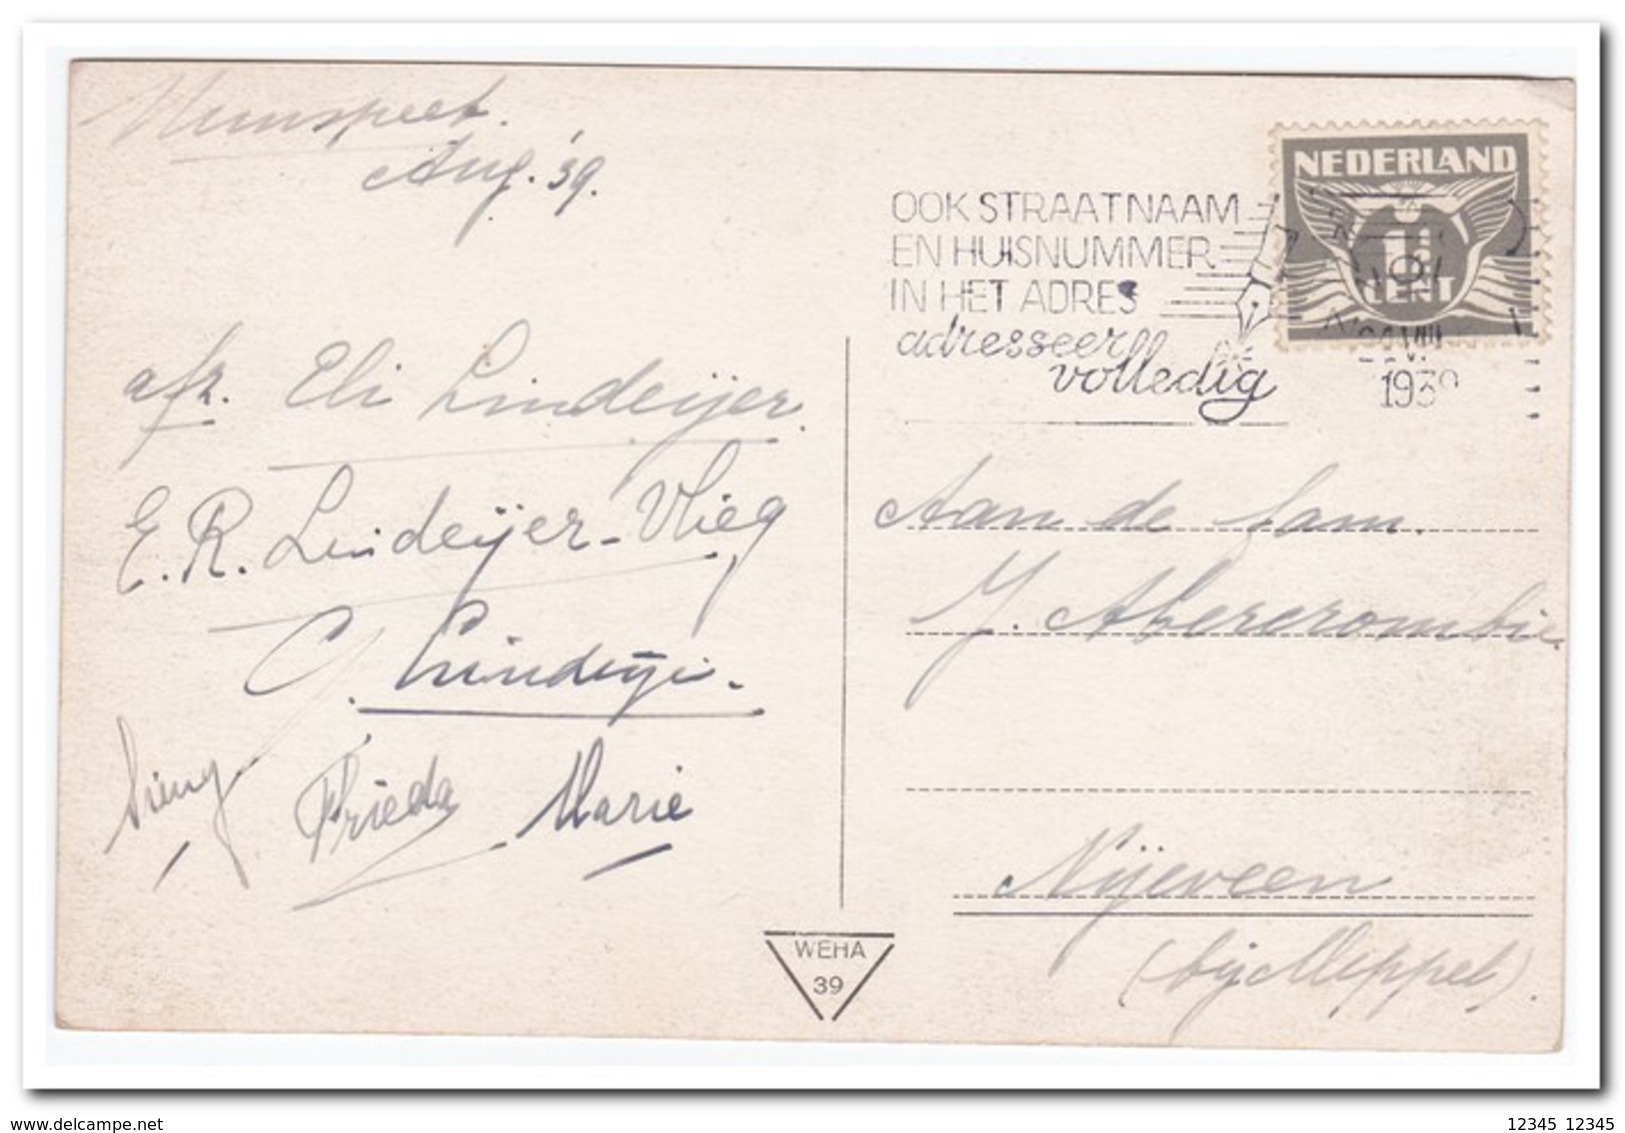 Nunspeet.
Aug. '39.
afz. Eli Lindeijer.
E. R. Lindeijer-Vlieg
C. Lindeijer.
Frieda Marie
NEDERLAND
1½
CENT
OOK STRAATNAAM
EN HUISNUMMER
IN HET ADRES
adresseer
volledig
1939
Aan de fam.
J. Abercrombie.
Nijeveen
(bij Meppel).
WEHA
39
www.delcampe.net
12345 12345